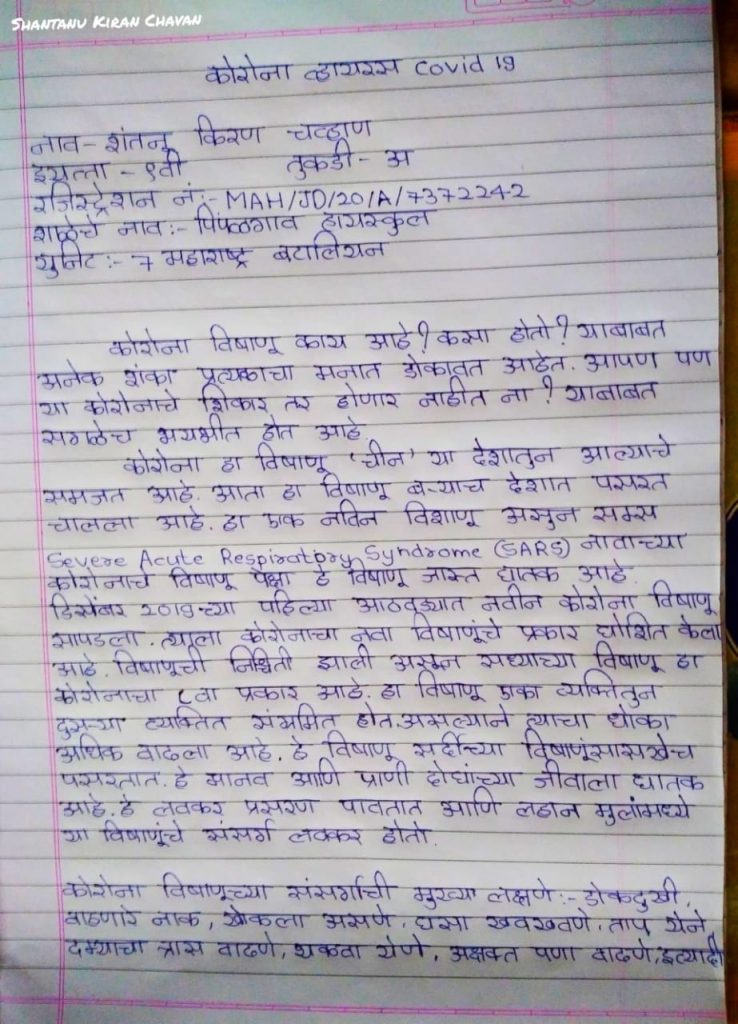 SHANTANU KIRAN CHAVAN
कोरोना व्हायरस covid 19
नाव - शंतनू किरण चव्हाण
इयत्ता - ९वी तुकडी - अ
रजिस्ट्रेशन नं.- MAH/JD/20/A/7372242
शाळेचे नाव:- पिंपळगाव हायस्कुल
युनिट:- 7 महाराष्ट्र बटालियन
कोरोना विषाणू काय आहे? कसा होतो? याबाबत
अनेक शंका प्रत्यकाचा मनात डोकावत आहेत. आपण पण
या कोरोनाचे शिकार तर होणार नाहीत ना? याबाबत
सगळेच भयभीत होत आहे.
कोरोना हा विषाणू 'चीन' या देशातुन आल्याचे
समजत आहे. आता हा विषाणू बऱ्याच देशात पसरत
चालला आहे. हा एक नविन विशाणू असुन सम्स
Severe Acute Respiratory Syndrome (SARS) नावाच्या
कोरोनाचे विषाणू पेक्षा हे विषाणू जास्त घातक आहे.
डिसेंबर 2019च्या पहिल्या आठवड्यात नवीन कोरोना विषाणू
सापडला. त्याला कोरोनाचा नवा विषाणूंचे प्रकार घोशित केला
आहे. विषाणूची निश्चिती झाली असून सध्याच्या विषाणू हा
कोरोनाचा ८वा प्रकार आहे. हा विषाणू एका व्यक्तितुन
दुसऱ्या व्यक्तित संक्रमित होत असल्याने त्याचा धोका
अधिक वाढला आहे. हे विषाणू सर्दीच्या विषाणूंसारखेच
पसरतात. हे मानव आणि प्राणी दोघांच्या जीवाला घातक
आहे. हे लवकर प्रसरण पावतात आणि लहान मुलांमध्ये
या विषाणूंचे संसर्ग लवकर होतो.
कोरोना विषाणूच्या संसर्गाची मुख्या लक्षणे:- डोकदुखी,
वाहणारे नाक, खोकला असणे, घसा खवखवणे, ताप येने
दम्याचा त्रास वाढणे, थकवा येणे, अशक्त पणा वाढणे, इत्यादी